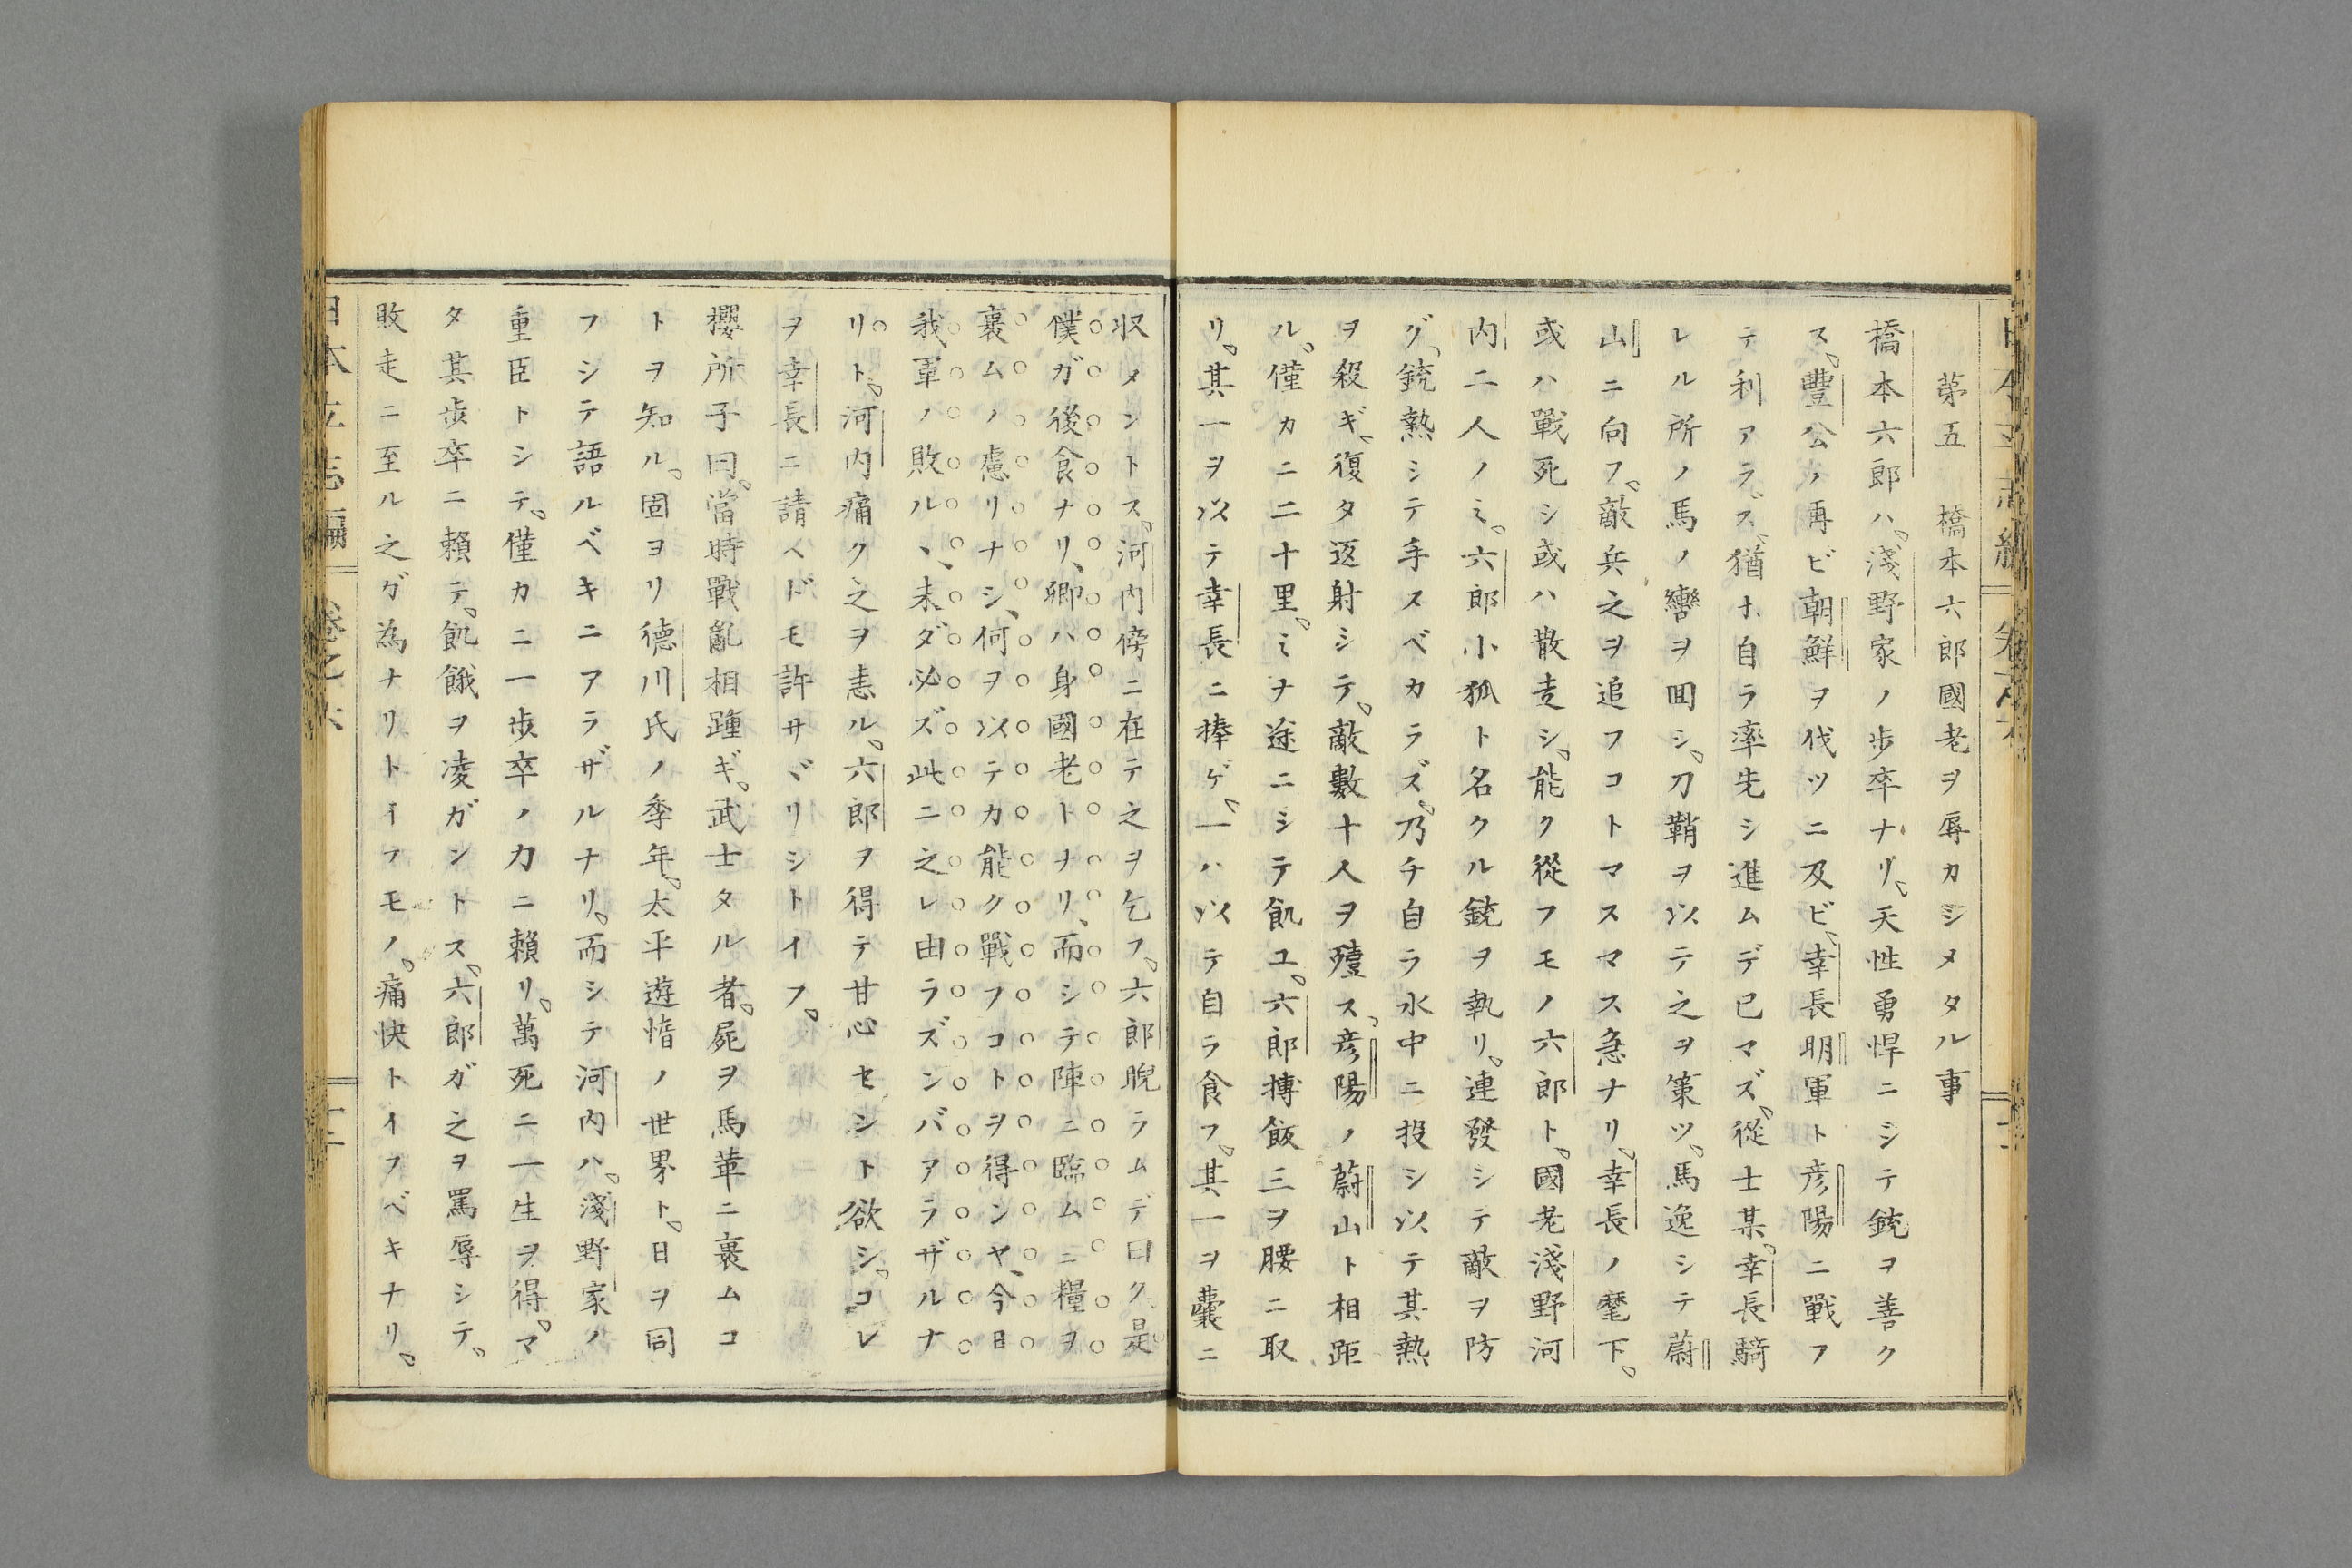 第五　橋本六郎國老ヲ辱カシメタル事
橋本六郎ハ。淺野家ノ歩卒ナリ。天性勇悍ニシテ銃ヲ善ク
ス。豐公ノ再ビ朝鮮ヲ伐ツニ及ビ、幸長明軍ト彦陽ニ戰フ
テ利アラズ。猶ホ自ラ率先シ進ムデ已マズ。從士某。幸長騎
レル所ノ馬ノ轡ヲ回シ。刀鞘ヲ以テ之ヲ策ツ。馬逸シテ蔚
山ニ向フ。敵兵之ヲ追フコトマスマス急ナリ。幸長ノ麾下。
或ハ戰死シ或ハ散走シ。能ク從フモノ六郎ト。國老淺野河
内二人ノミ。六郎小狐ト名クル銃ヲ執リ。連發シテ敵ヲ防
グ。銃熱シテ手スベカラズ。乃チ自ラ水中ニ投シ以テ其熱
ヲ殺ギ、復タ返射シテ。敵數十人ヲ殪ス。彦陽ノ蔚山ト相距
ル。僅カニ二十里。ミナ途ニシテ飢ユ。六郎摶飯三ヲ腰ニ取
リ。其一ヲ以テ幸長ニ捧ゲ。一ハ以テ自ラ食フ。其一ヲ嚢ニ
収メントス。河内傍ニ在テ之ヲ乞フ。六郎睨ラムデ曰ク。是
僕ガ後食ナリ、卿ハ身國老トナリ、而シテ陣ニ臨ムニ糧ヲ
裹ムノ慮リナシ、何ヲ以テカ能ク戰フコトヲ得ンヤ、今日
我軍ノ敗ルヽ、未ダ必ズ此ニ之レ由ラズンバアラザルナ
リト。河内痛ク之ヲ恚ル。六郎ヲ得テ甘心セント欲シ。コレ
ヲ幸長ニ請ヘドモ許サヾリシトイフ。
櫻所子曰。當時戰亂相踵ギ。武士タル者。屍ヲ馬革ニ裹ムコ
トヲ知ル。固ヨリ德川氏ノ季年。太平遊惰ノ世界ト。日ヲ同
フシテ語ルベキニアラザルナリ。而シテ河内ハ。淺野家ノ
重臣トシテ。僅カニ一歩卒ノ力ニ賴リ。萬死ニ一生ヲ得。マ
タ其歩卒ニ賴テ。飢餓ヲ凌ガントス。六郎ガ之ヲ罵辱シテ。
敗走ニ至ル之ガ為ナリトイフモノ。痛快トイフベキナリ。
日本立志編　卷之六　十二